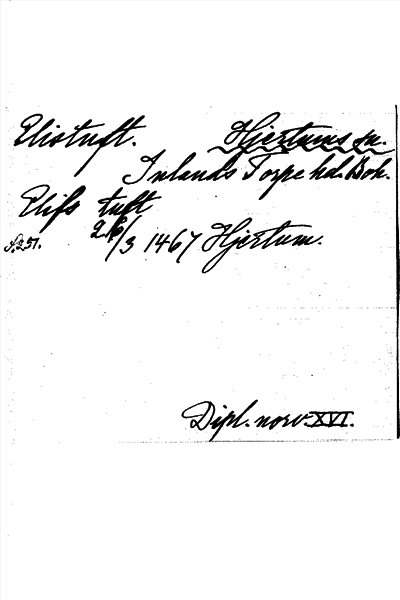 Elistuft. Hjertums sn.
Inlands Torpe hd. Boh.
Elifs tuft
s. 257. 26/3 1467 Hjertum.
Dipl. norv. XVI.